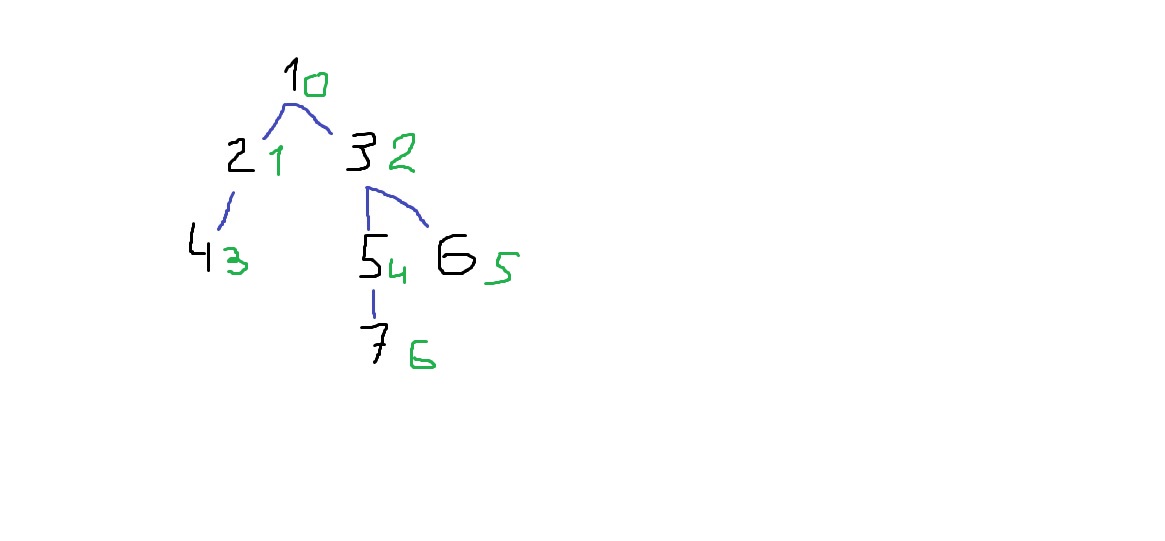 1 0
2 1 3 2
4 3 5 4 6 5
7 6